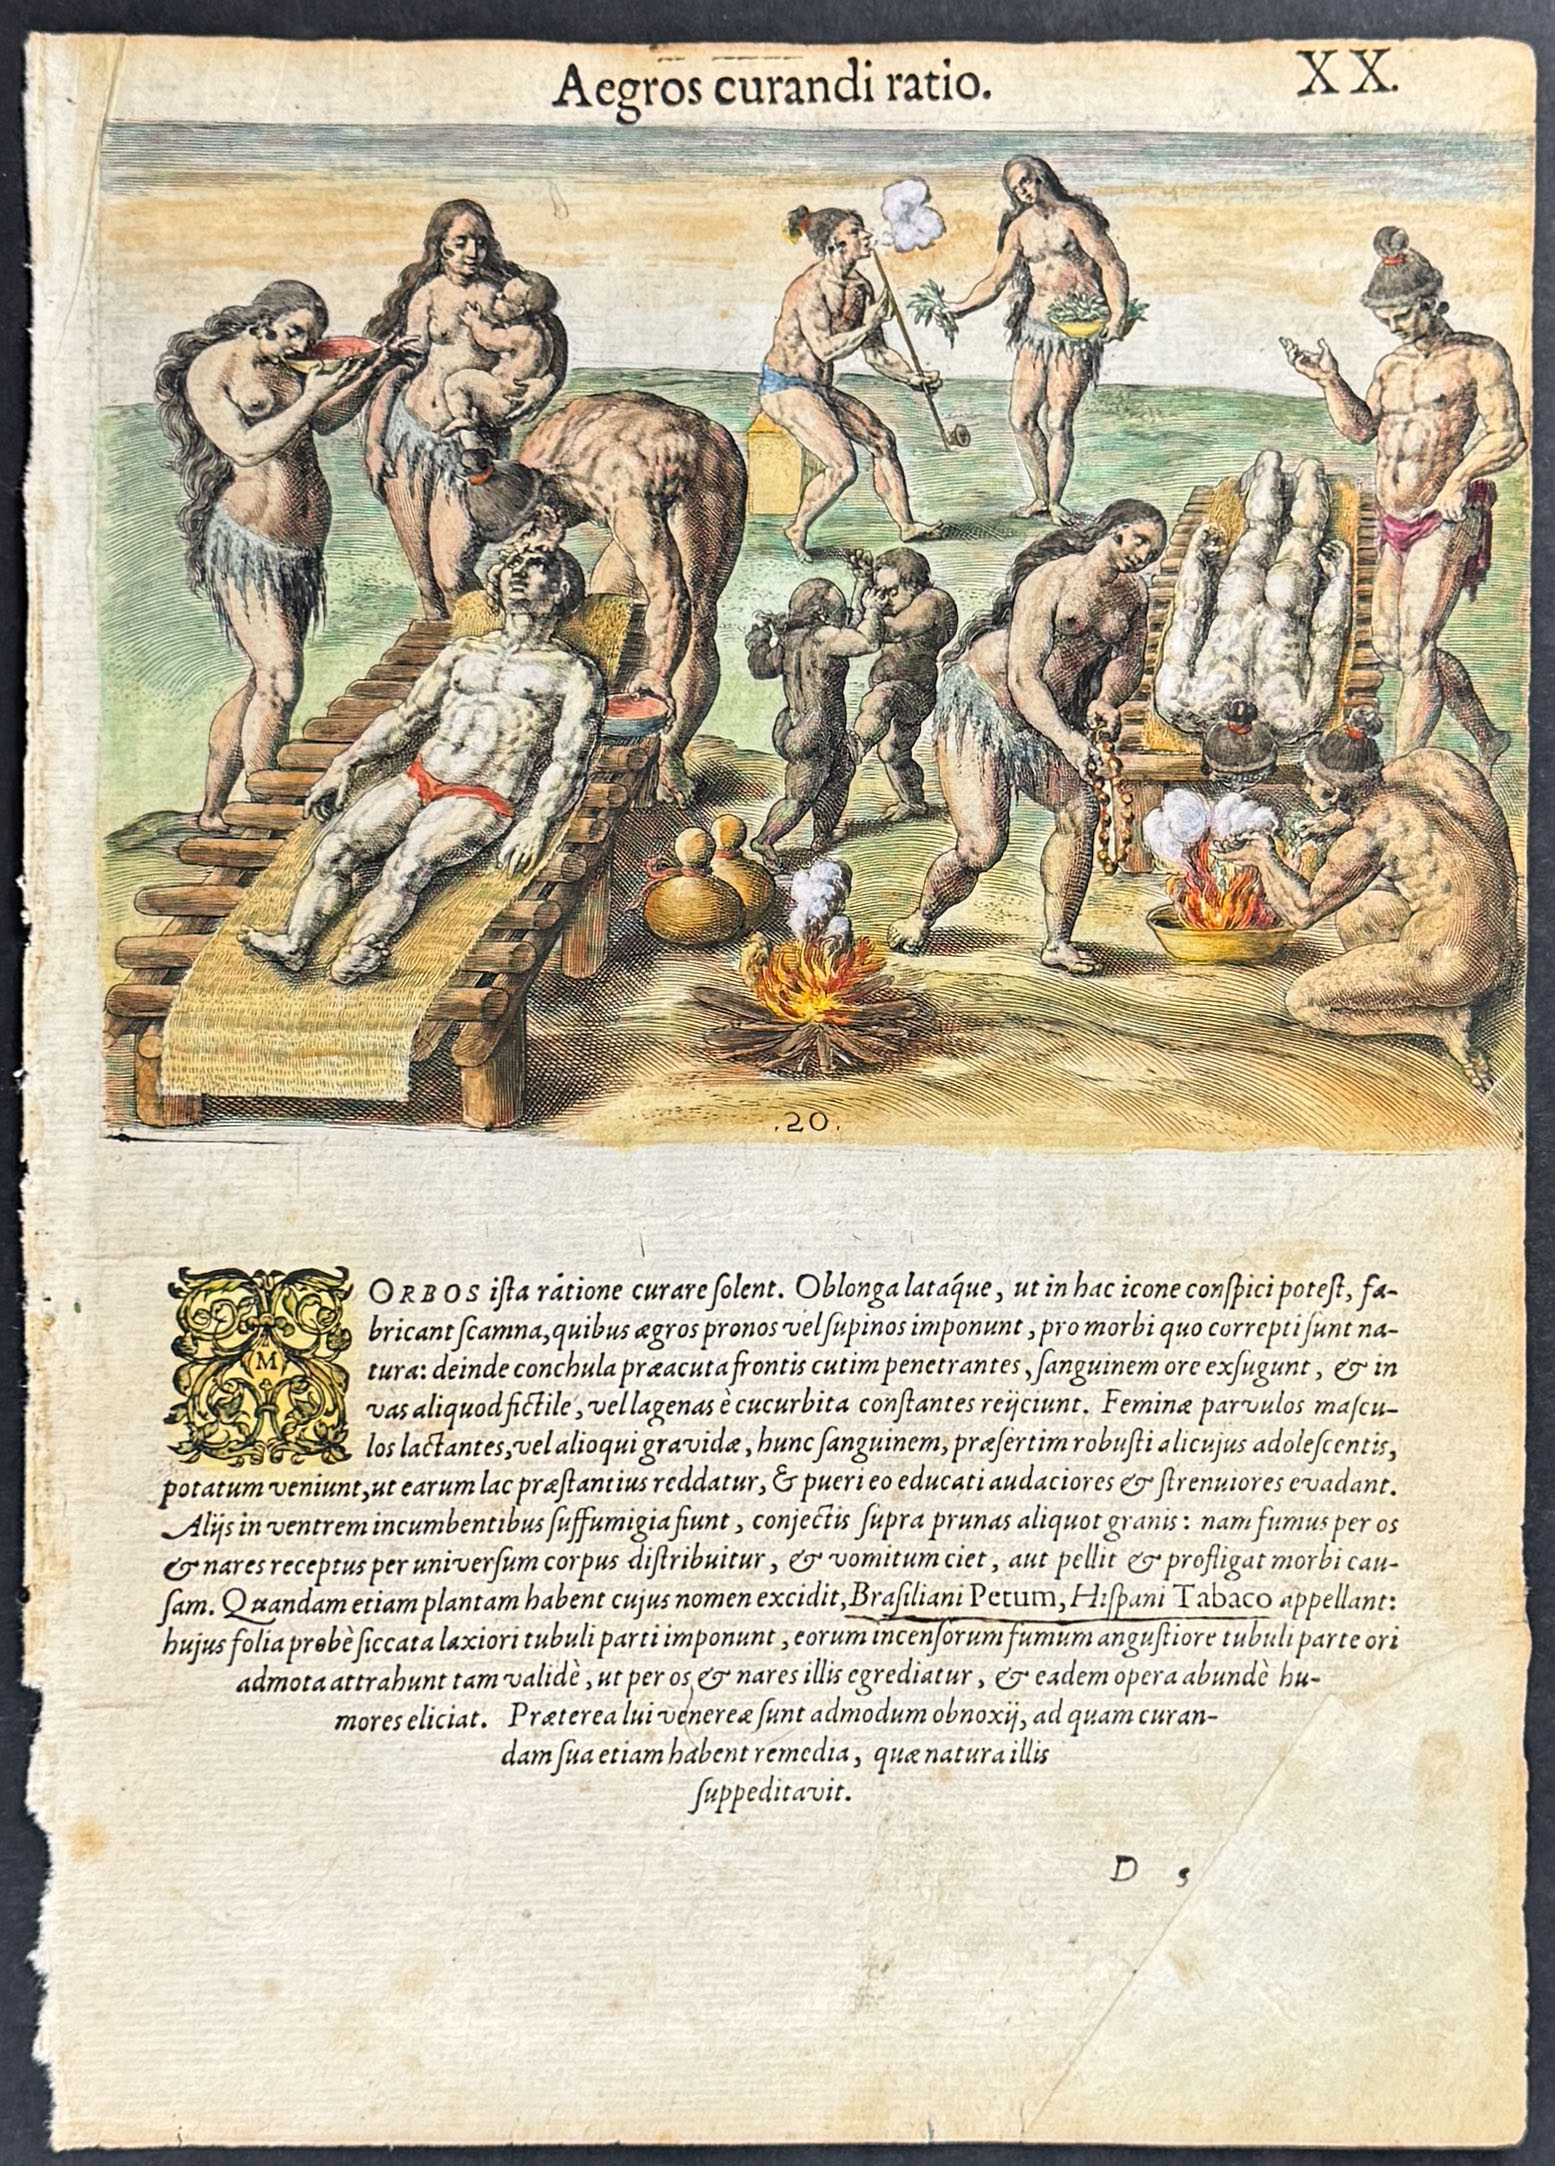 Aegros curandi ratio. XX.
.20.
MORBOS iſta ratione curare ſolent. Oblonga lataque, ut in hac icone conſpici poteſt, fa-
bricant ſcamna, quibus ægros pronos vel ſupinos imponunt, pro morbi quo correpti ſunt na-
tura: deinde conchula præacuta frontis cutim penetrantes, ſanguinem ore exſugunt, & in
vas aliquod fictile, vel lagenas è cucurbita conſtantes reijciunt. Feminæ parvulos maſcu-
los lactantes, vel alioqui gravidæ, hunc ſanguinem, præſertim robuſti alicujus adoleſcentis,
potatum veniunt, ut earum lac præſtantius reddatur, & pueri eo educati audaciores & ſtrenuiores evadant.
Alijs in ventrem incumbentibus ſuffumigia fiunt, conjectis ſupra prunas aliquot granis: nam fumus per os
& nares receptus per univerſum corpus diſtribuitur, & vomitum ciet, aut pellit & profligat morbi cau-
ſam. Quandam etiam plantam habent cujus nomen excidit, Braſiliani Petum, Hiſpani Tabaco appellant:
hujus folia probè ſiccata laxiori tubuli parti imponunt, eorum incenſorum fumum anguſtiore tubuli parte ori
admota attrahunt tam validè, ut per os & nares illis egrediatur, & eadem opera abundè hu-
mores eliciat. Præterea lui venereæ ſunt admodum obnoxij, ad quam curan-
dam ſua etiam habent remedia, quæ natura illis
ſuppeditavit.
D 5